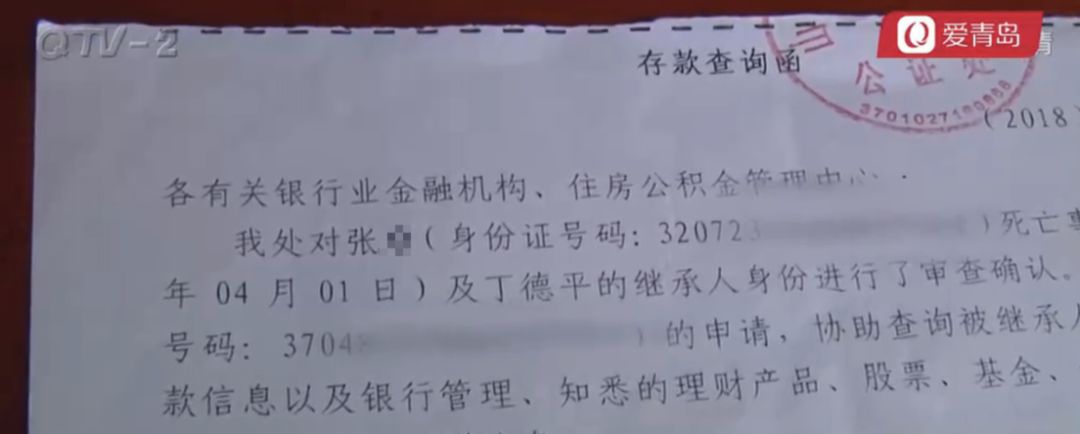 QTV-2
爱青岛
存款查询函
公证处
(2018)
各有关银行业金融机构、住房公积金管理中心
我处对张 (身份证号码: 320723 )死亡事
年 04 月 01 日)及丁德平的继承人身份进行了审查确认。
号码: 3704 )的申请,协助查询被继承人
款信息以及银行管理、知悉的理财产品、股票、基金、